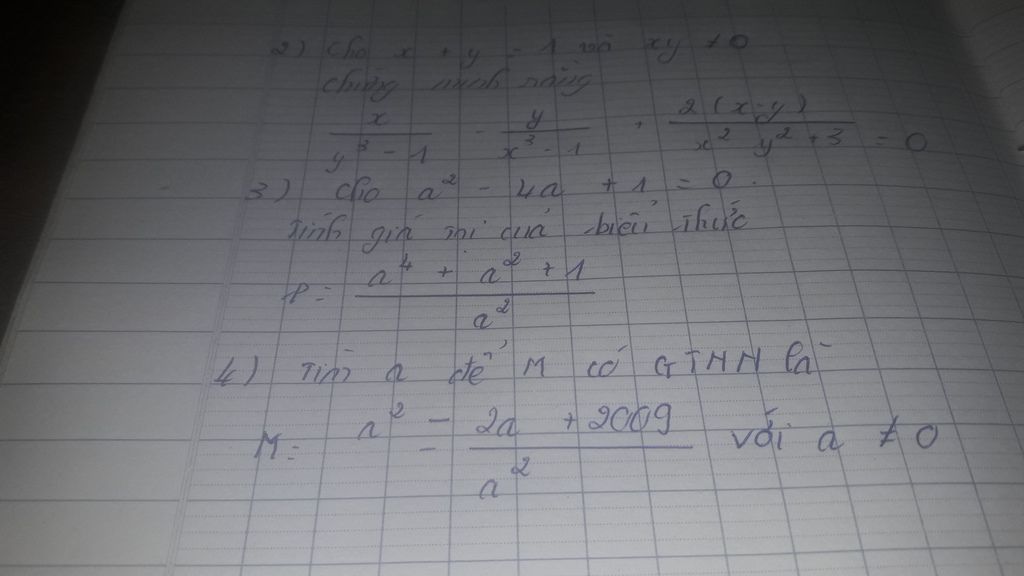 2) Cho x + y = 1 và xy ≠ 0
chứng minh rằng
x / (y³ - 1) - y / (x³ - 1) + 2(x-y) / (x² y² + 3) = 0
3) cho a² - 4a + 1 = 0.
Tính giá trị của biểu thức
P = (a⁴ + a² + 1) / a²
4) Tìm a để M có GTNN là
M = (a² - 2a + 2009) / a² với a ≠ 0